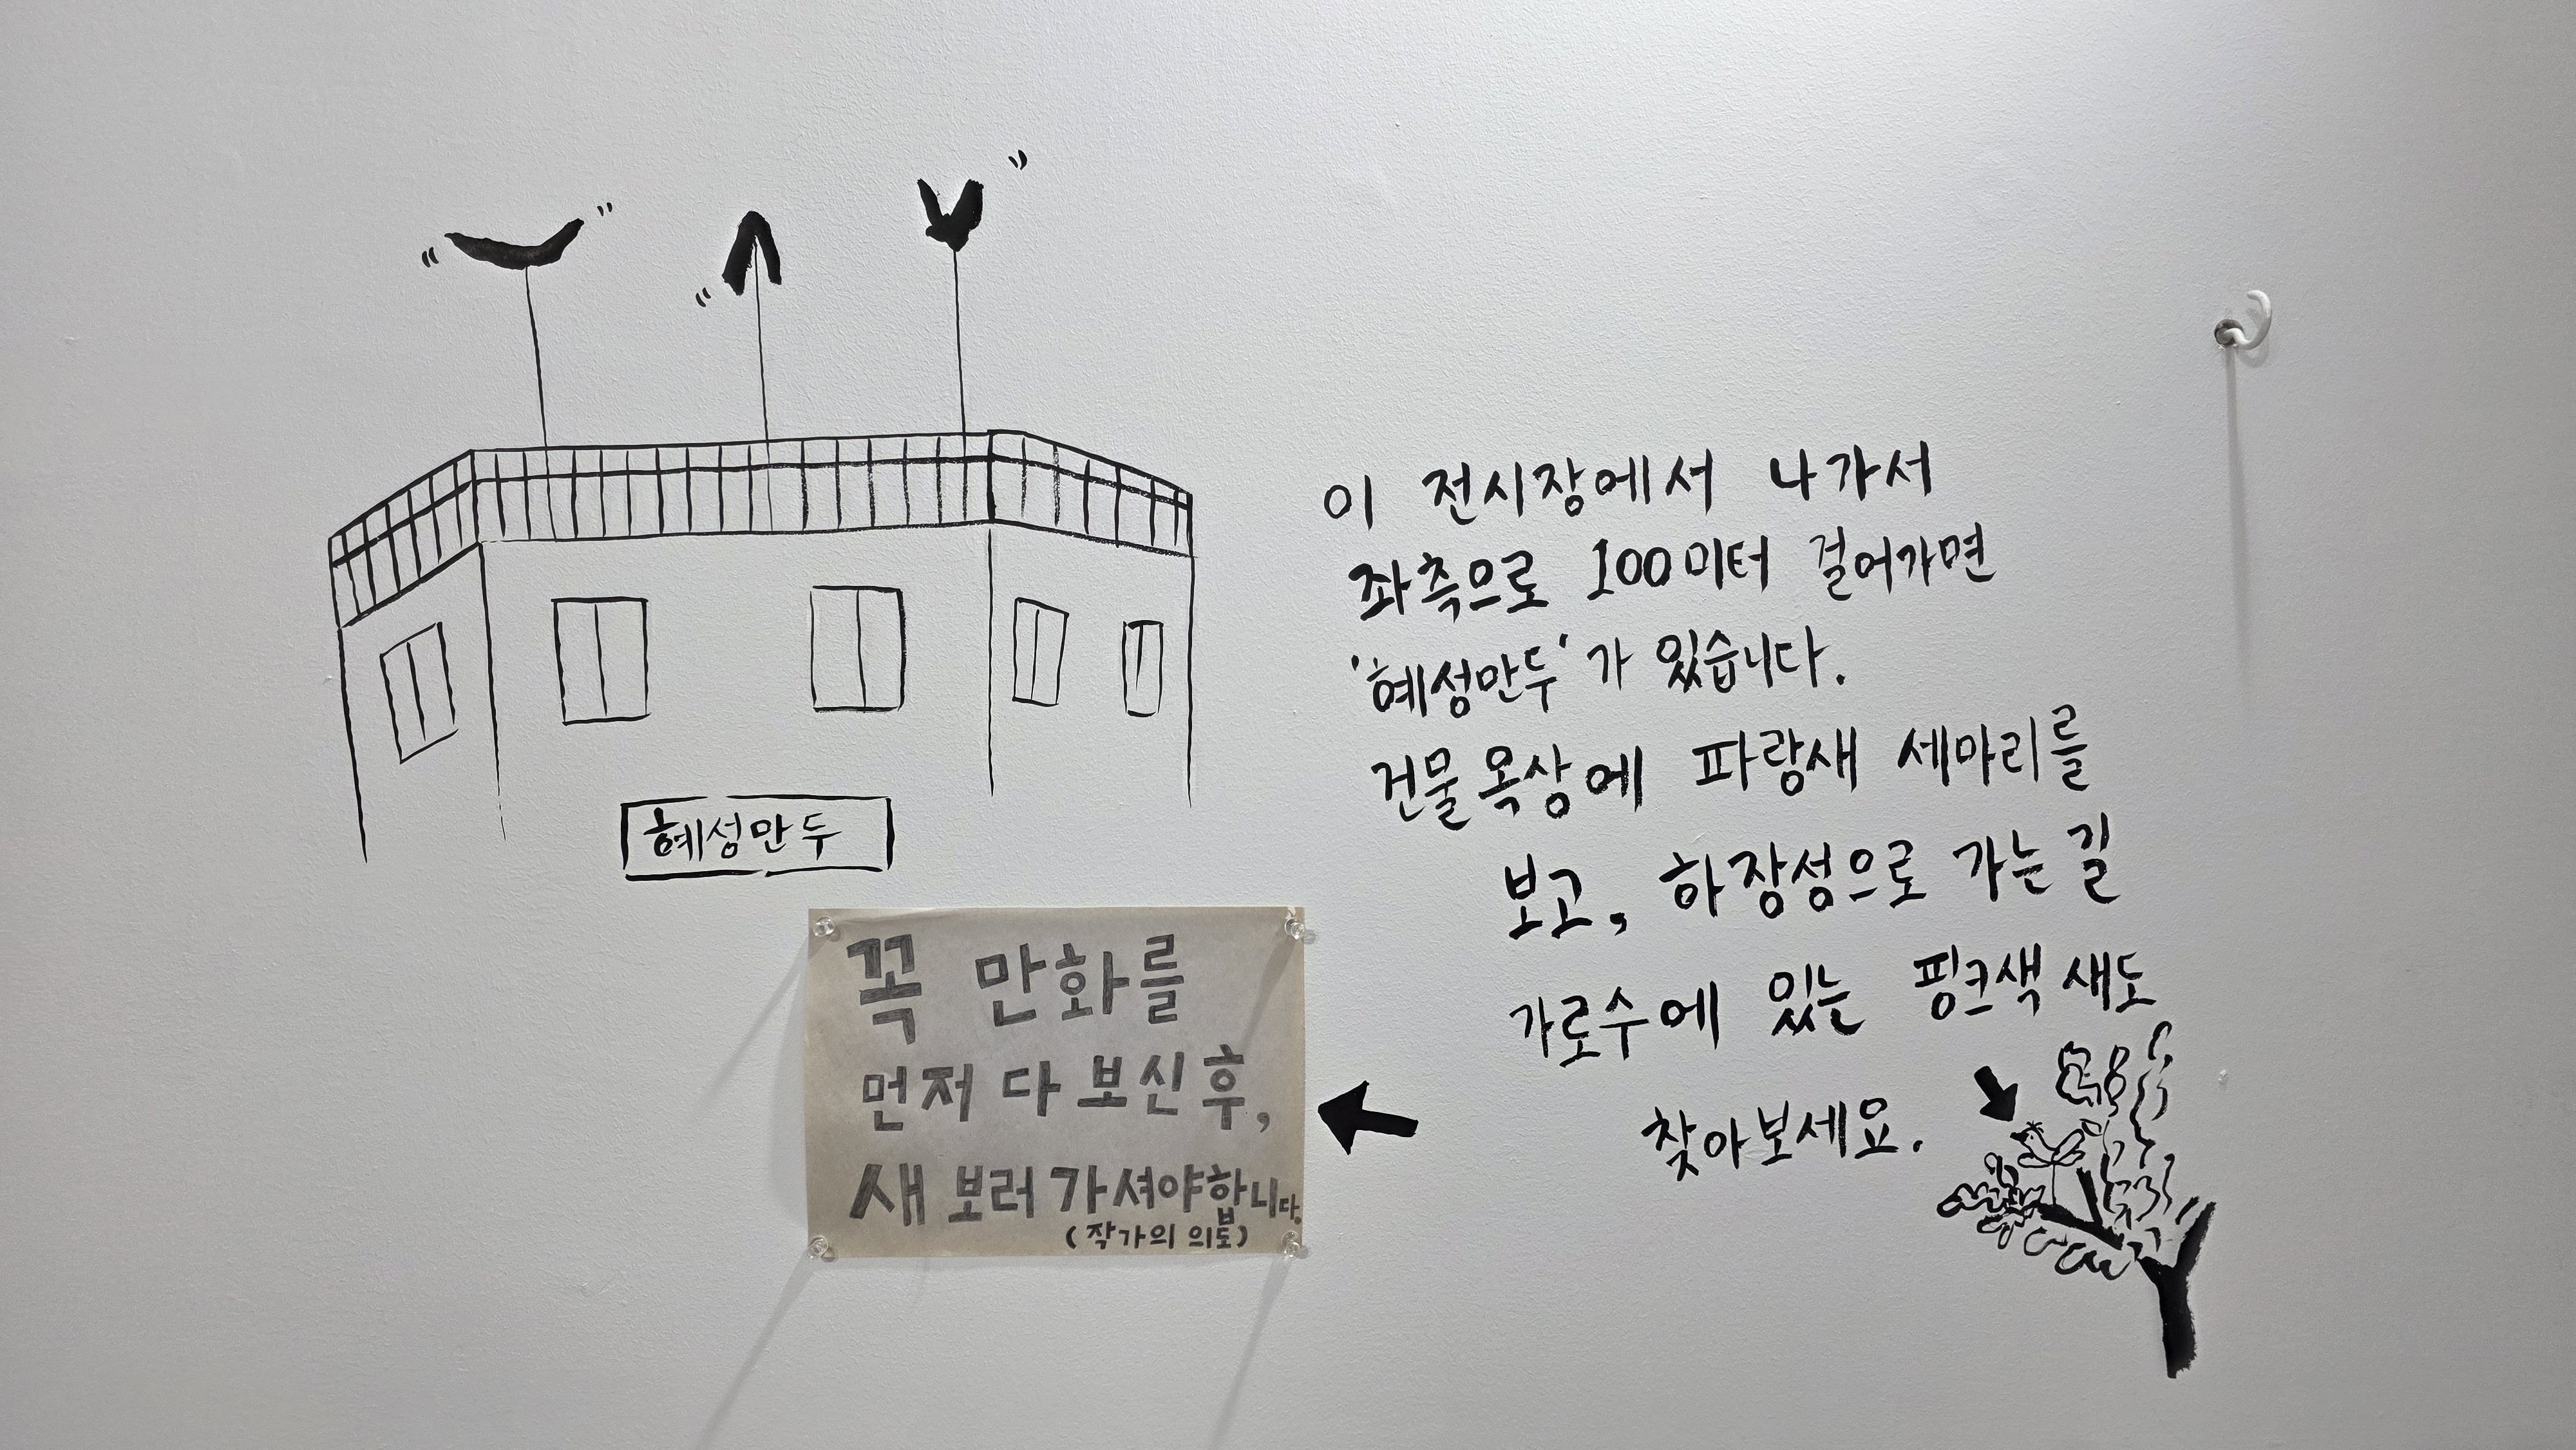 이 전시장에서 나가서
좌측으로 100미터 걸어가면
'혜성만두'가 있습니다.
건물 옥상에 파랑새 세마리를
보고, 하장성으로 가는 길
가로수에 있는 핑크색 새도
찾아보세요.
혜성만두
꼭 만화를
먼저 다 보신 후,
새 보러 가셔야합니다.
(작가의 의도)